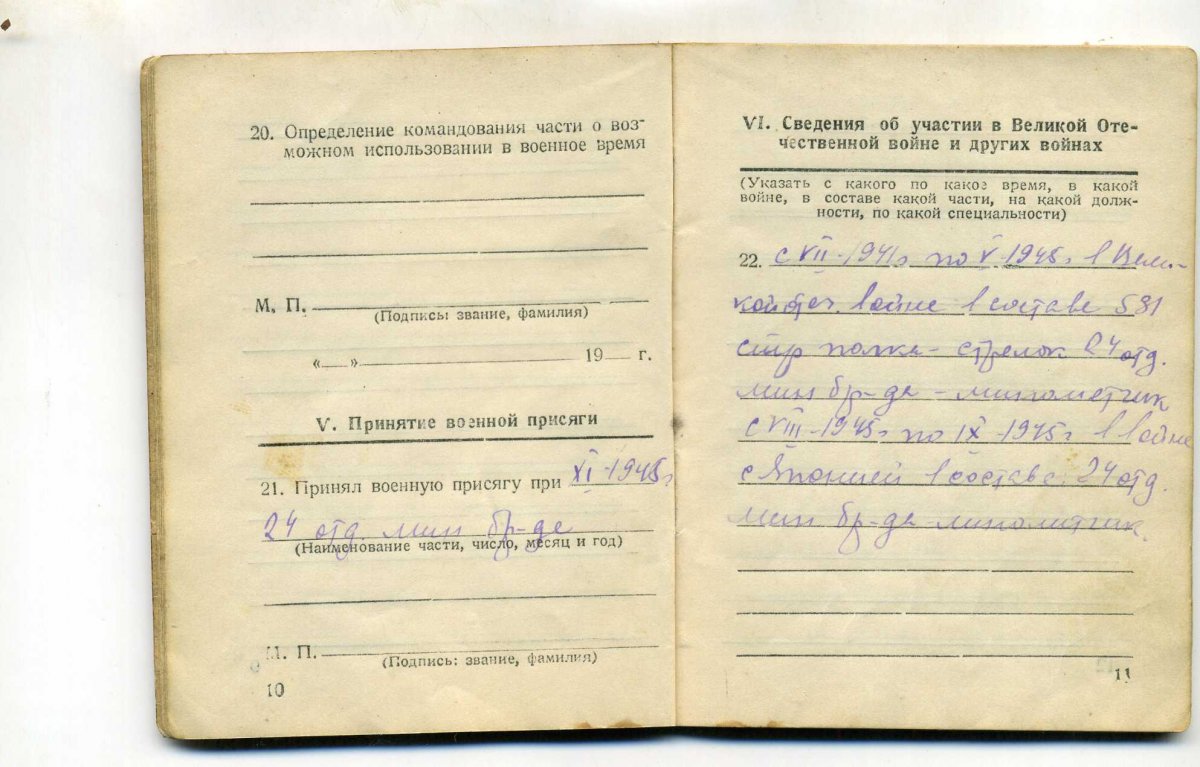 20. Определение командования части о воз-
можном использовании в военное время
М. П.
(Подпись: звание, фамилия)
«__» 19__ г.
V. Принятие военной присяги
21. Принял военную присягу при XI-1945г
24 отд. мин бр-де
(Наименование части, число, месяц и год)
М. П.
(Подпись: звание, фамилия)
10
VI. Сведения об участии в Великой Оте-
чественной войне и других войнах
(Указать с какого по какое время, в какой
войне, в составе какой части, на какой долж-
ности, по какой специальности)
22. с VII-1941г по V-1945г в Вели-
кой отеч. войне в составе 581
стр полка - стрелок 24 отд.
мин бр-де - минометчик
с VIII-1945г по IX-1945г в войне
с Японией в составе 24 отд.
мин бр-де минометчик.
11